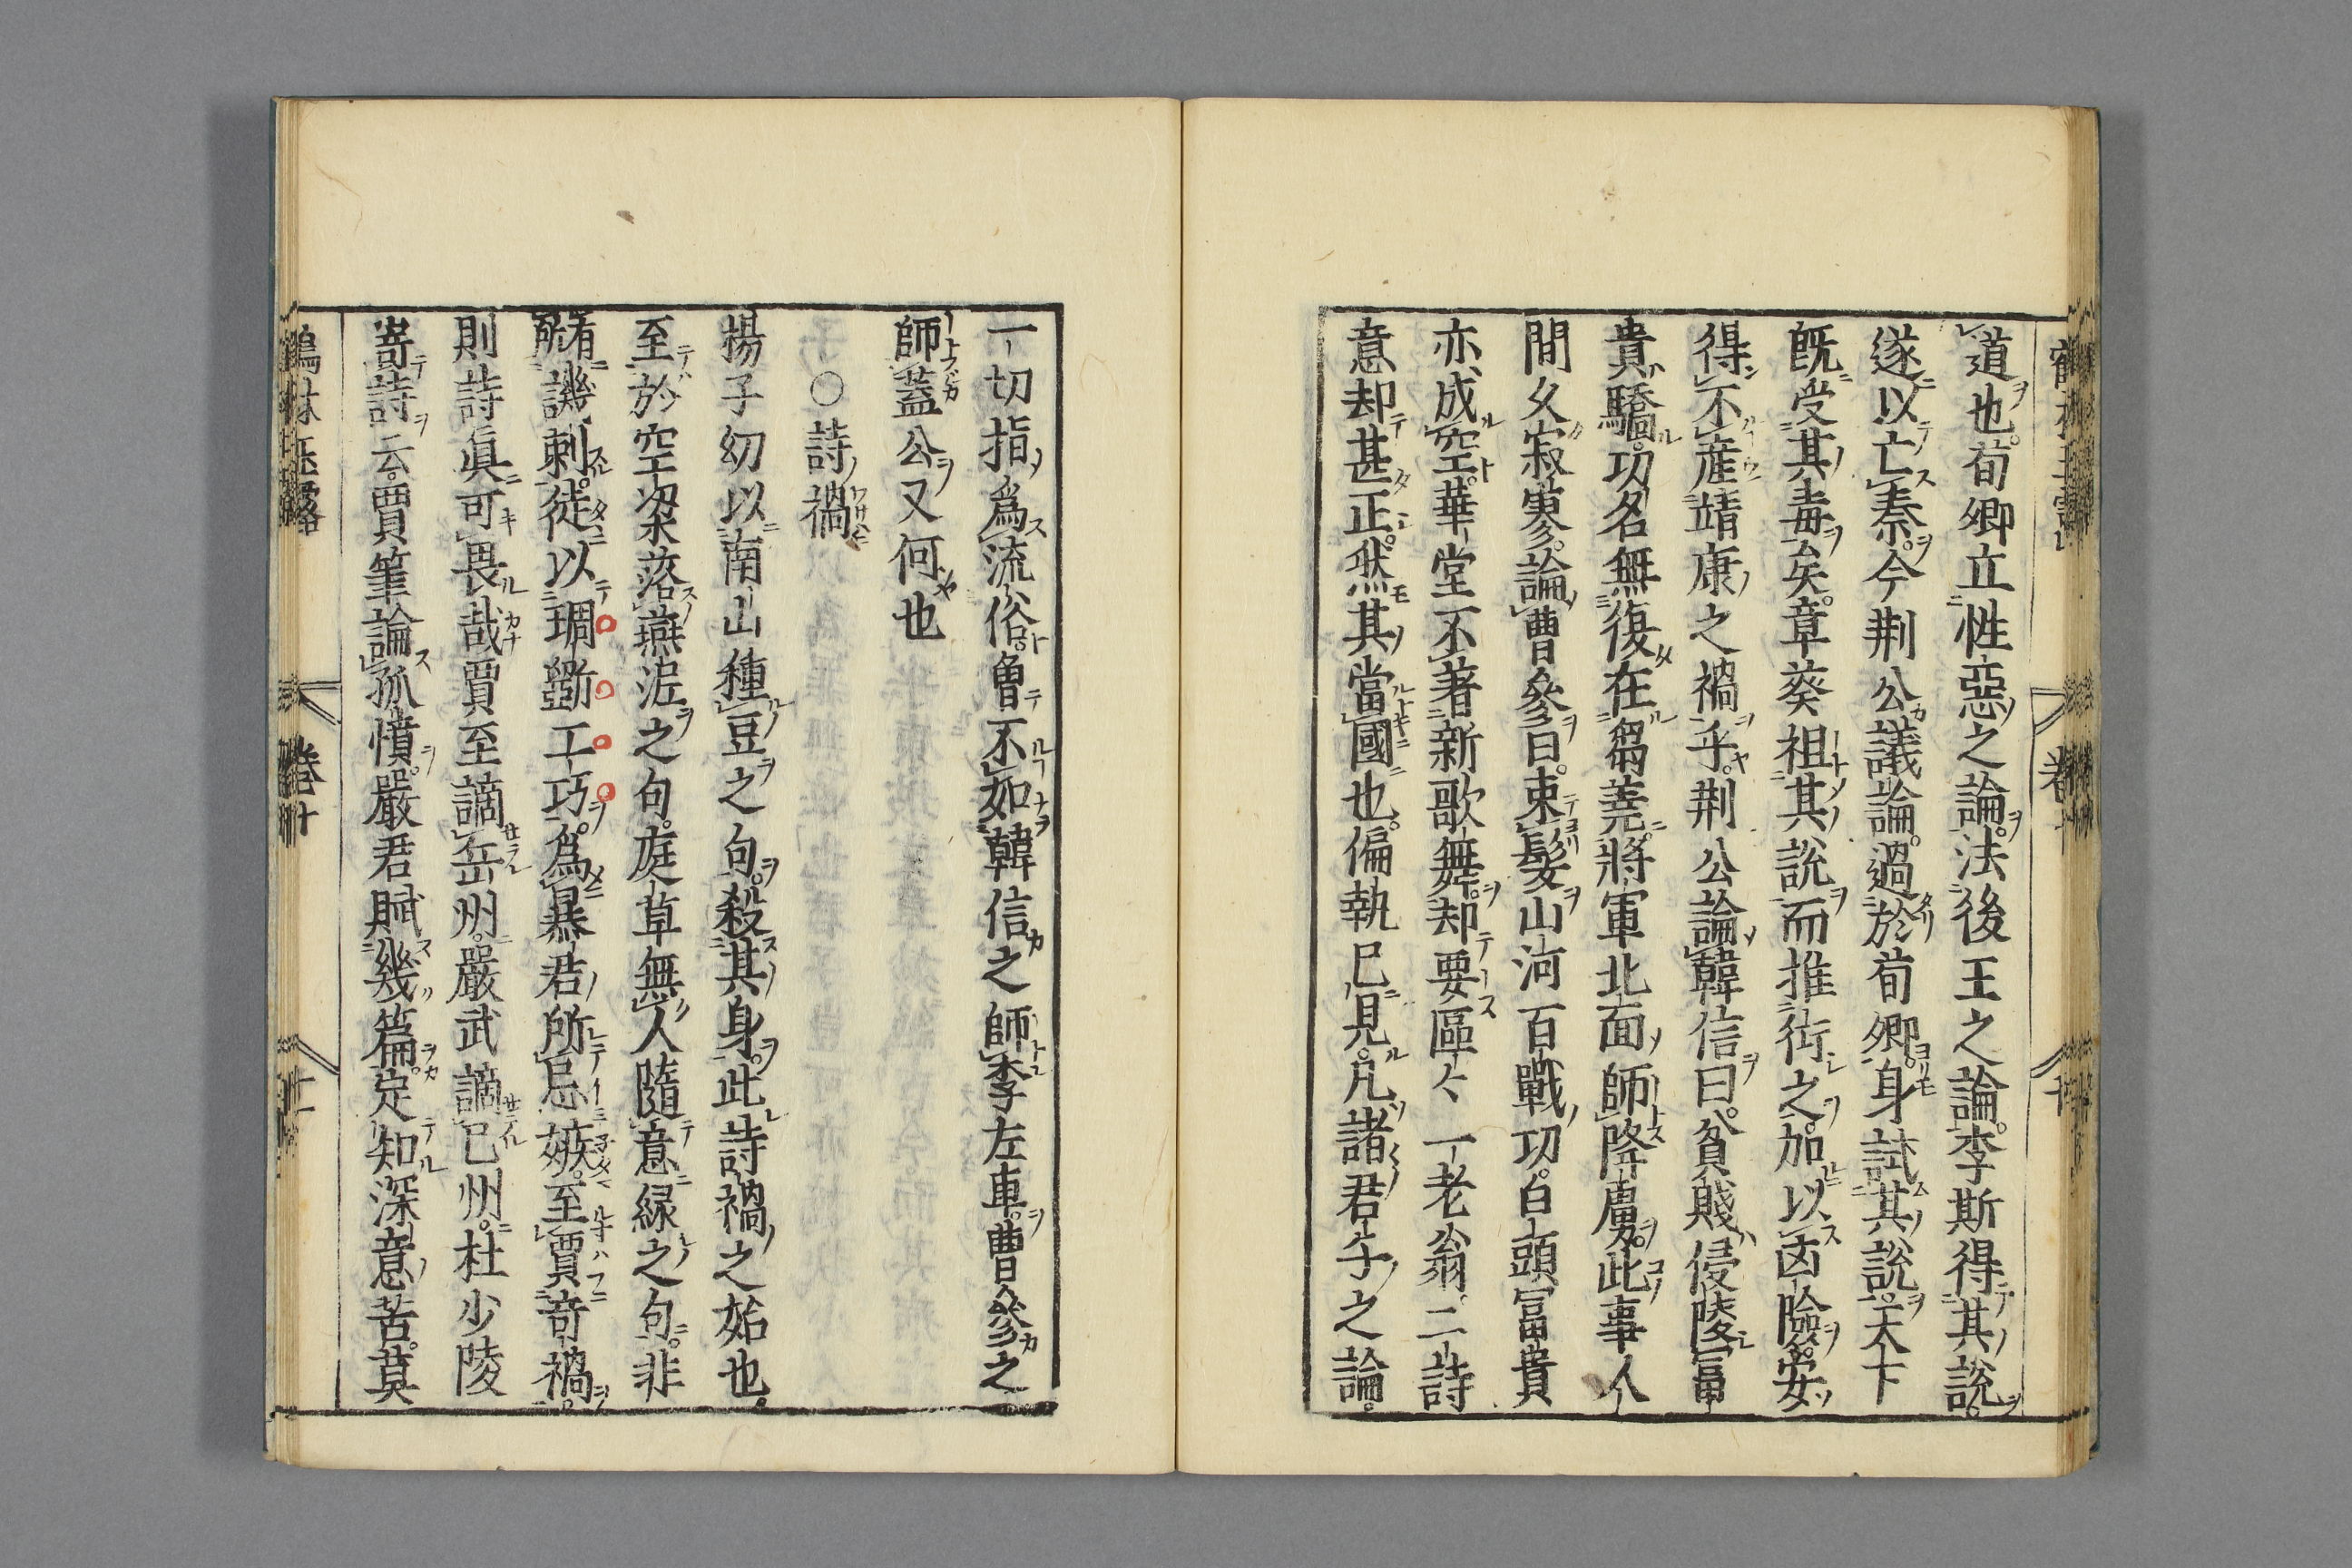 道也。荀卿立性惡之論。法後王之論。李斯得其說。
遂以亡秦。今荆公議論。過於荀卿。身試其說。天下
既受其毒矣。章蔡祖其說而推衍之。加以凶險。安
得不産靖康之禍乎。荆公論韓信曰。貧賤侵陵富
貴驕。功名無復在芻蕘。將軍北面師降虜。此事人
間久寂寥。論曹參曰。束髮山河百戰功。白頭富貴
亦成空。華堂不著新歌舞。却要區々一老翁。二詩
意却甚正。然其當國也。偏執已見。凡諸君子之論。
一切指爲流俗。曾不如韓信之師李左車。曹參之
師蓋公。又何也
○詩禍
揚子幼以南山種豆之句。殺其身。此詩禍之始也。
至於空梁落燕泥之句。庭草無人隨意緑之句。非
有所譏刺。徒以琱斵工巧。爲暴君所忌嫉。至賈竒禍。
則詩眞可畏哉賈至謫岳州。嚴武謫巴州。杜少陵
寄詩云。賈筆論孤憤。嚴君賦幾篇。定知深意苦。莫
鶴林玉露 卷十 十一